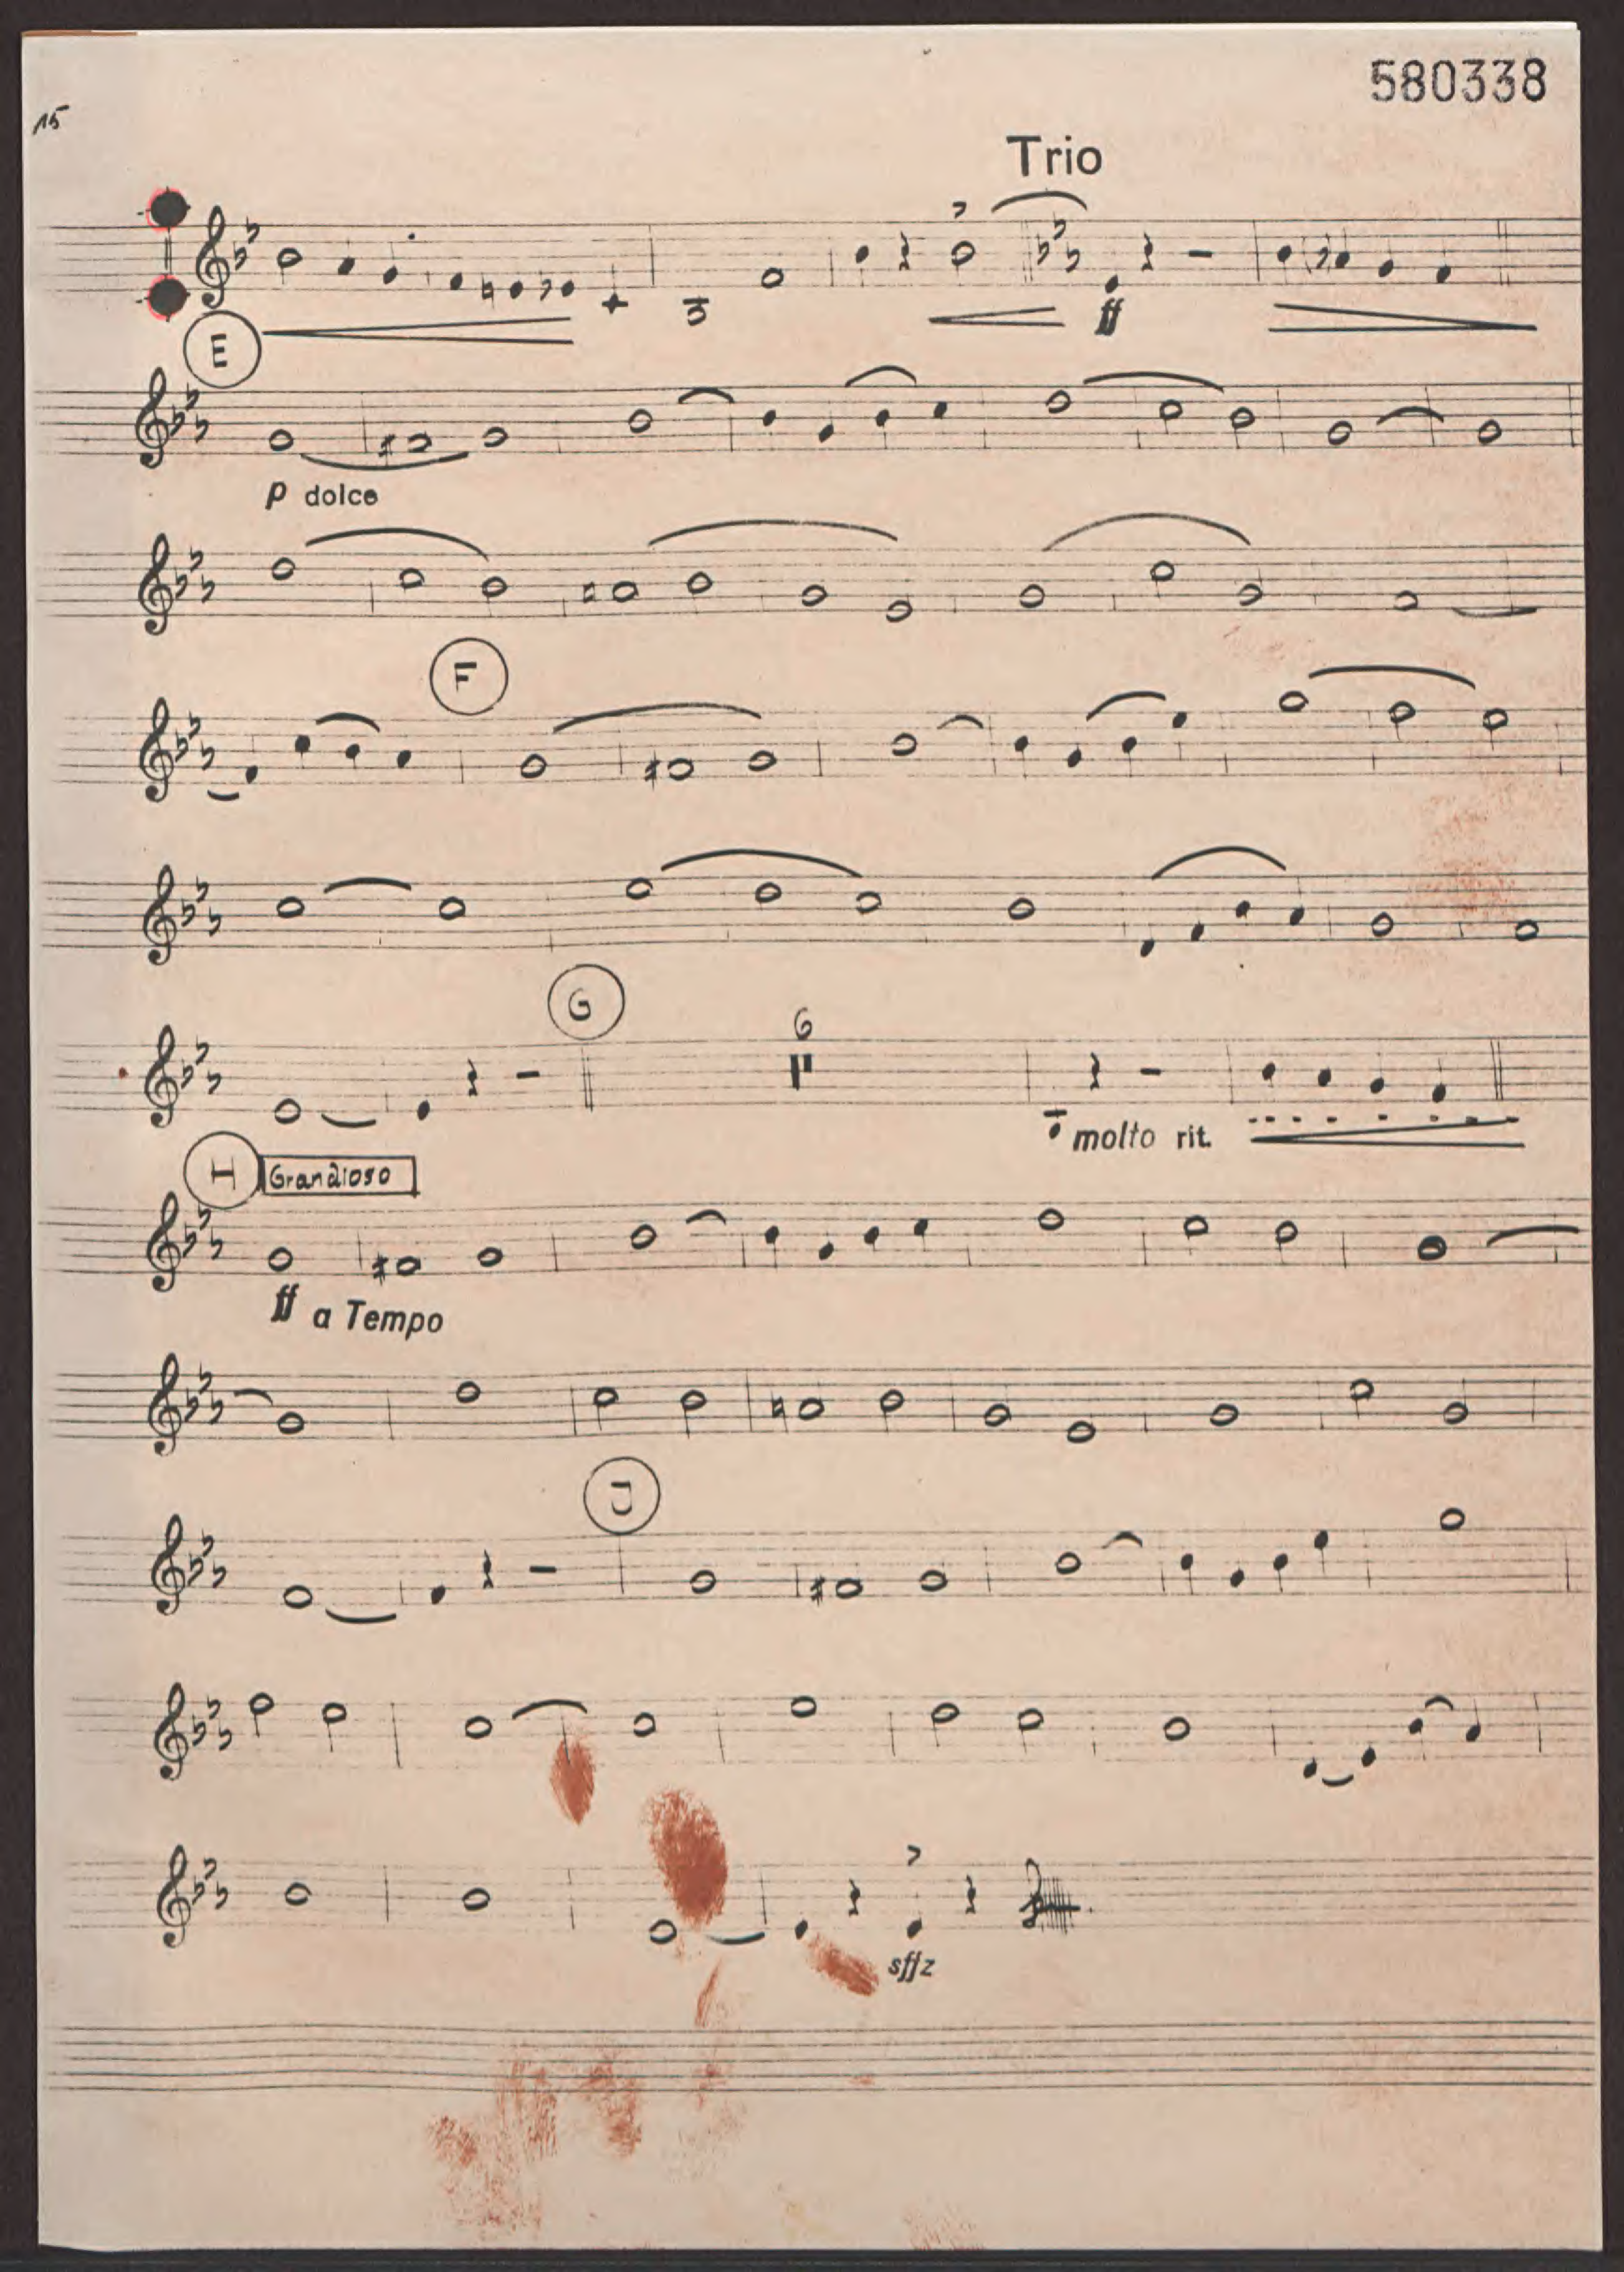 580338
15
Trio
ff
E
p dolce
F
G
6
molto rit.
H Grandioso
ff a Tempo
J
sffz